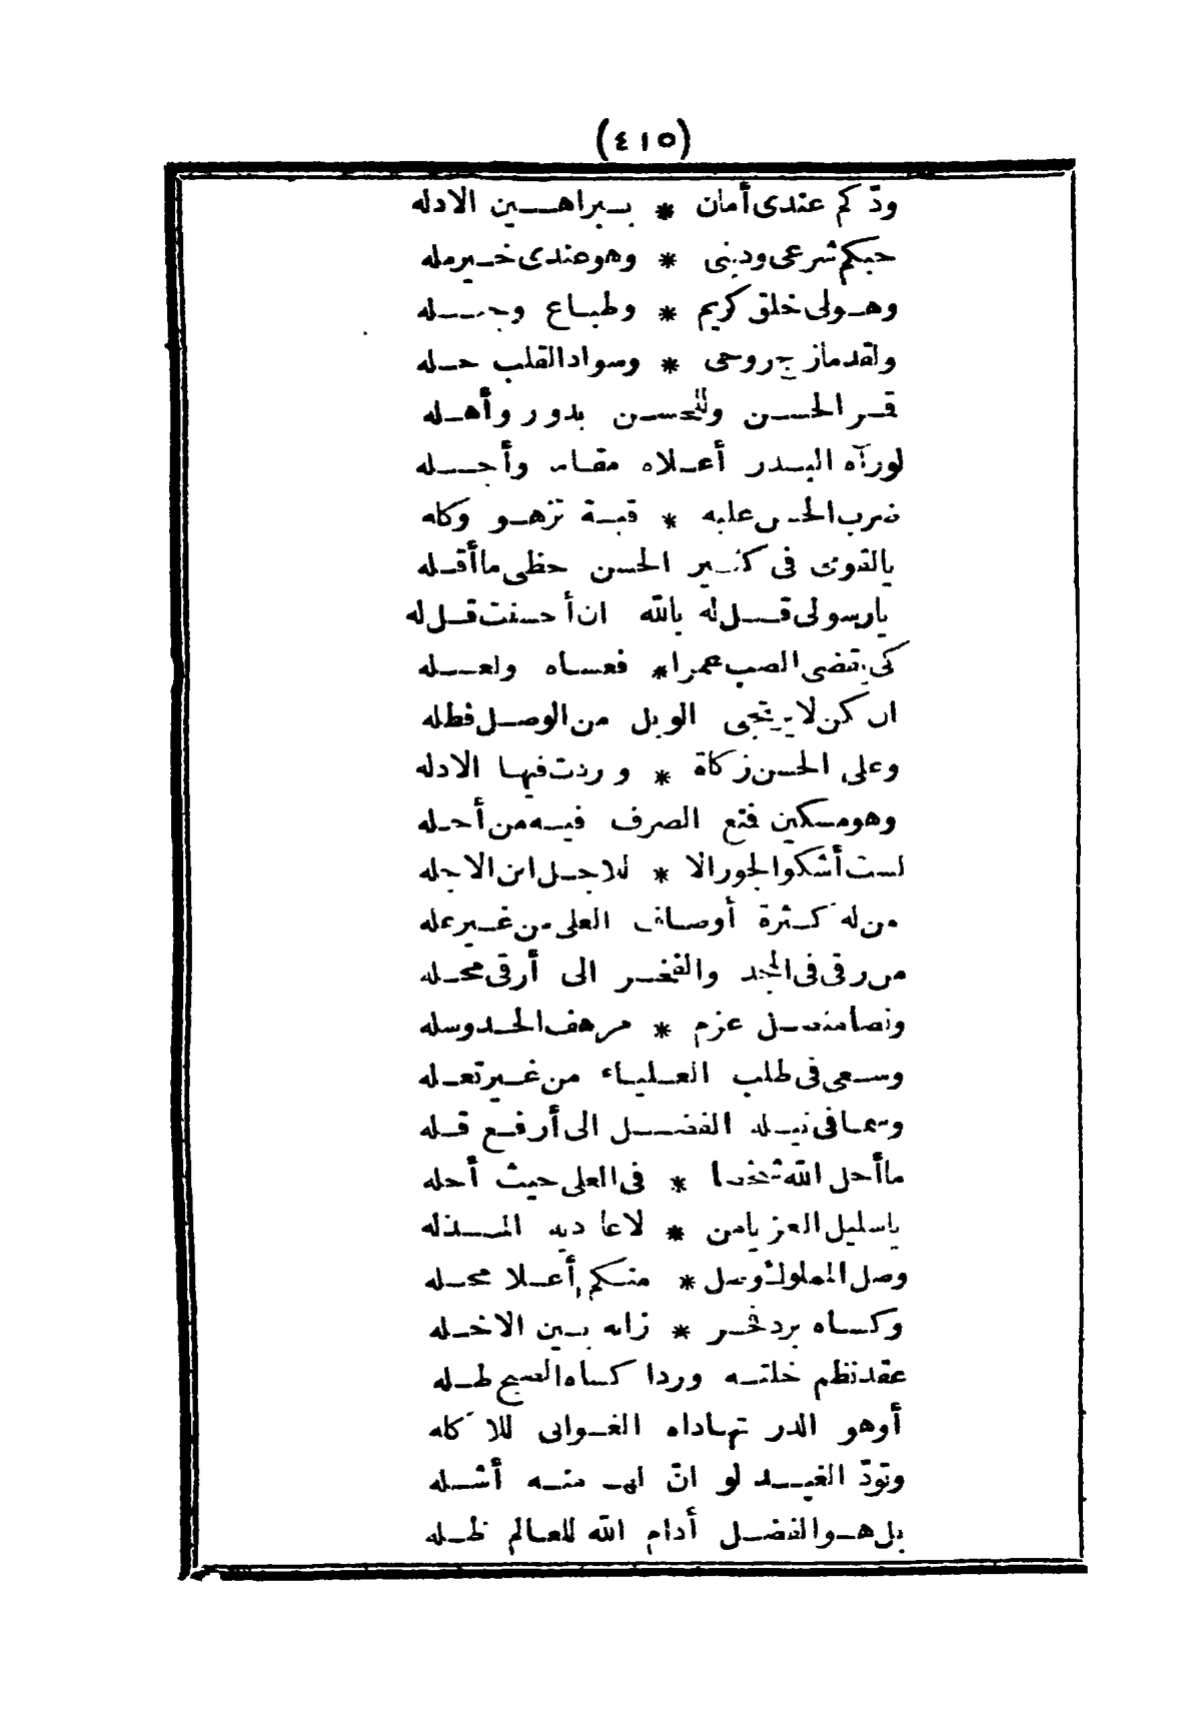 (٤١٥)
ودّكم عندى أمان * ببراهين الادله
حبكم شرعى ودينى * وهو عندى خير مله
وهولى خلق كريم * وطباع وجبله
ولقد مازج روحى * وسواد القلب حله
قر الحسن وللحسن بدور وأهله
لورآه البدر أعلاه مقاما وأجله
ضرب الحسن عليه * قبة تزهو وكله
يالقومى فى كثير الحسن حظى ما أقله
يارسولى قل له بالله ان أحسنت قل له
كى يقضى الصب عمرا * فعساه ولعله
ان يكن لا يرتجى الوبل من الوصل فطله
وعلى الحسن زكاة * وردت فيها الادله
وهو مسكين فتح الصرف فيه من أحله
لست أشكو الجور الا * للاجل ابن الاجله
من له كثرة أوصاف العلى من غير عله
من رقى فى المجد والفخر الى أرقى محله
ونضا منصل عزم * مرهف الحد وسله
وسعى فى طلب العلياء من غير تعله
وسما فى نيله الفضل الى أرفع قله
ما أحل الله شخصا * فى العلى حيث أحله
ياسليل العز يامن * لاعاديه المذله
وصل المملوك وصل * منكم أعلا محله
وكساه برد فخر * زانه بين الاخله
عقد نظم خلته وردا كساه الصبح طله
أوهو الدر تهاداه الغوانى للاكله
وتودّ الغيد لو انّ لها منه أشله
بل هو الفضل أدام الله للعالم ظله